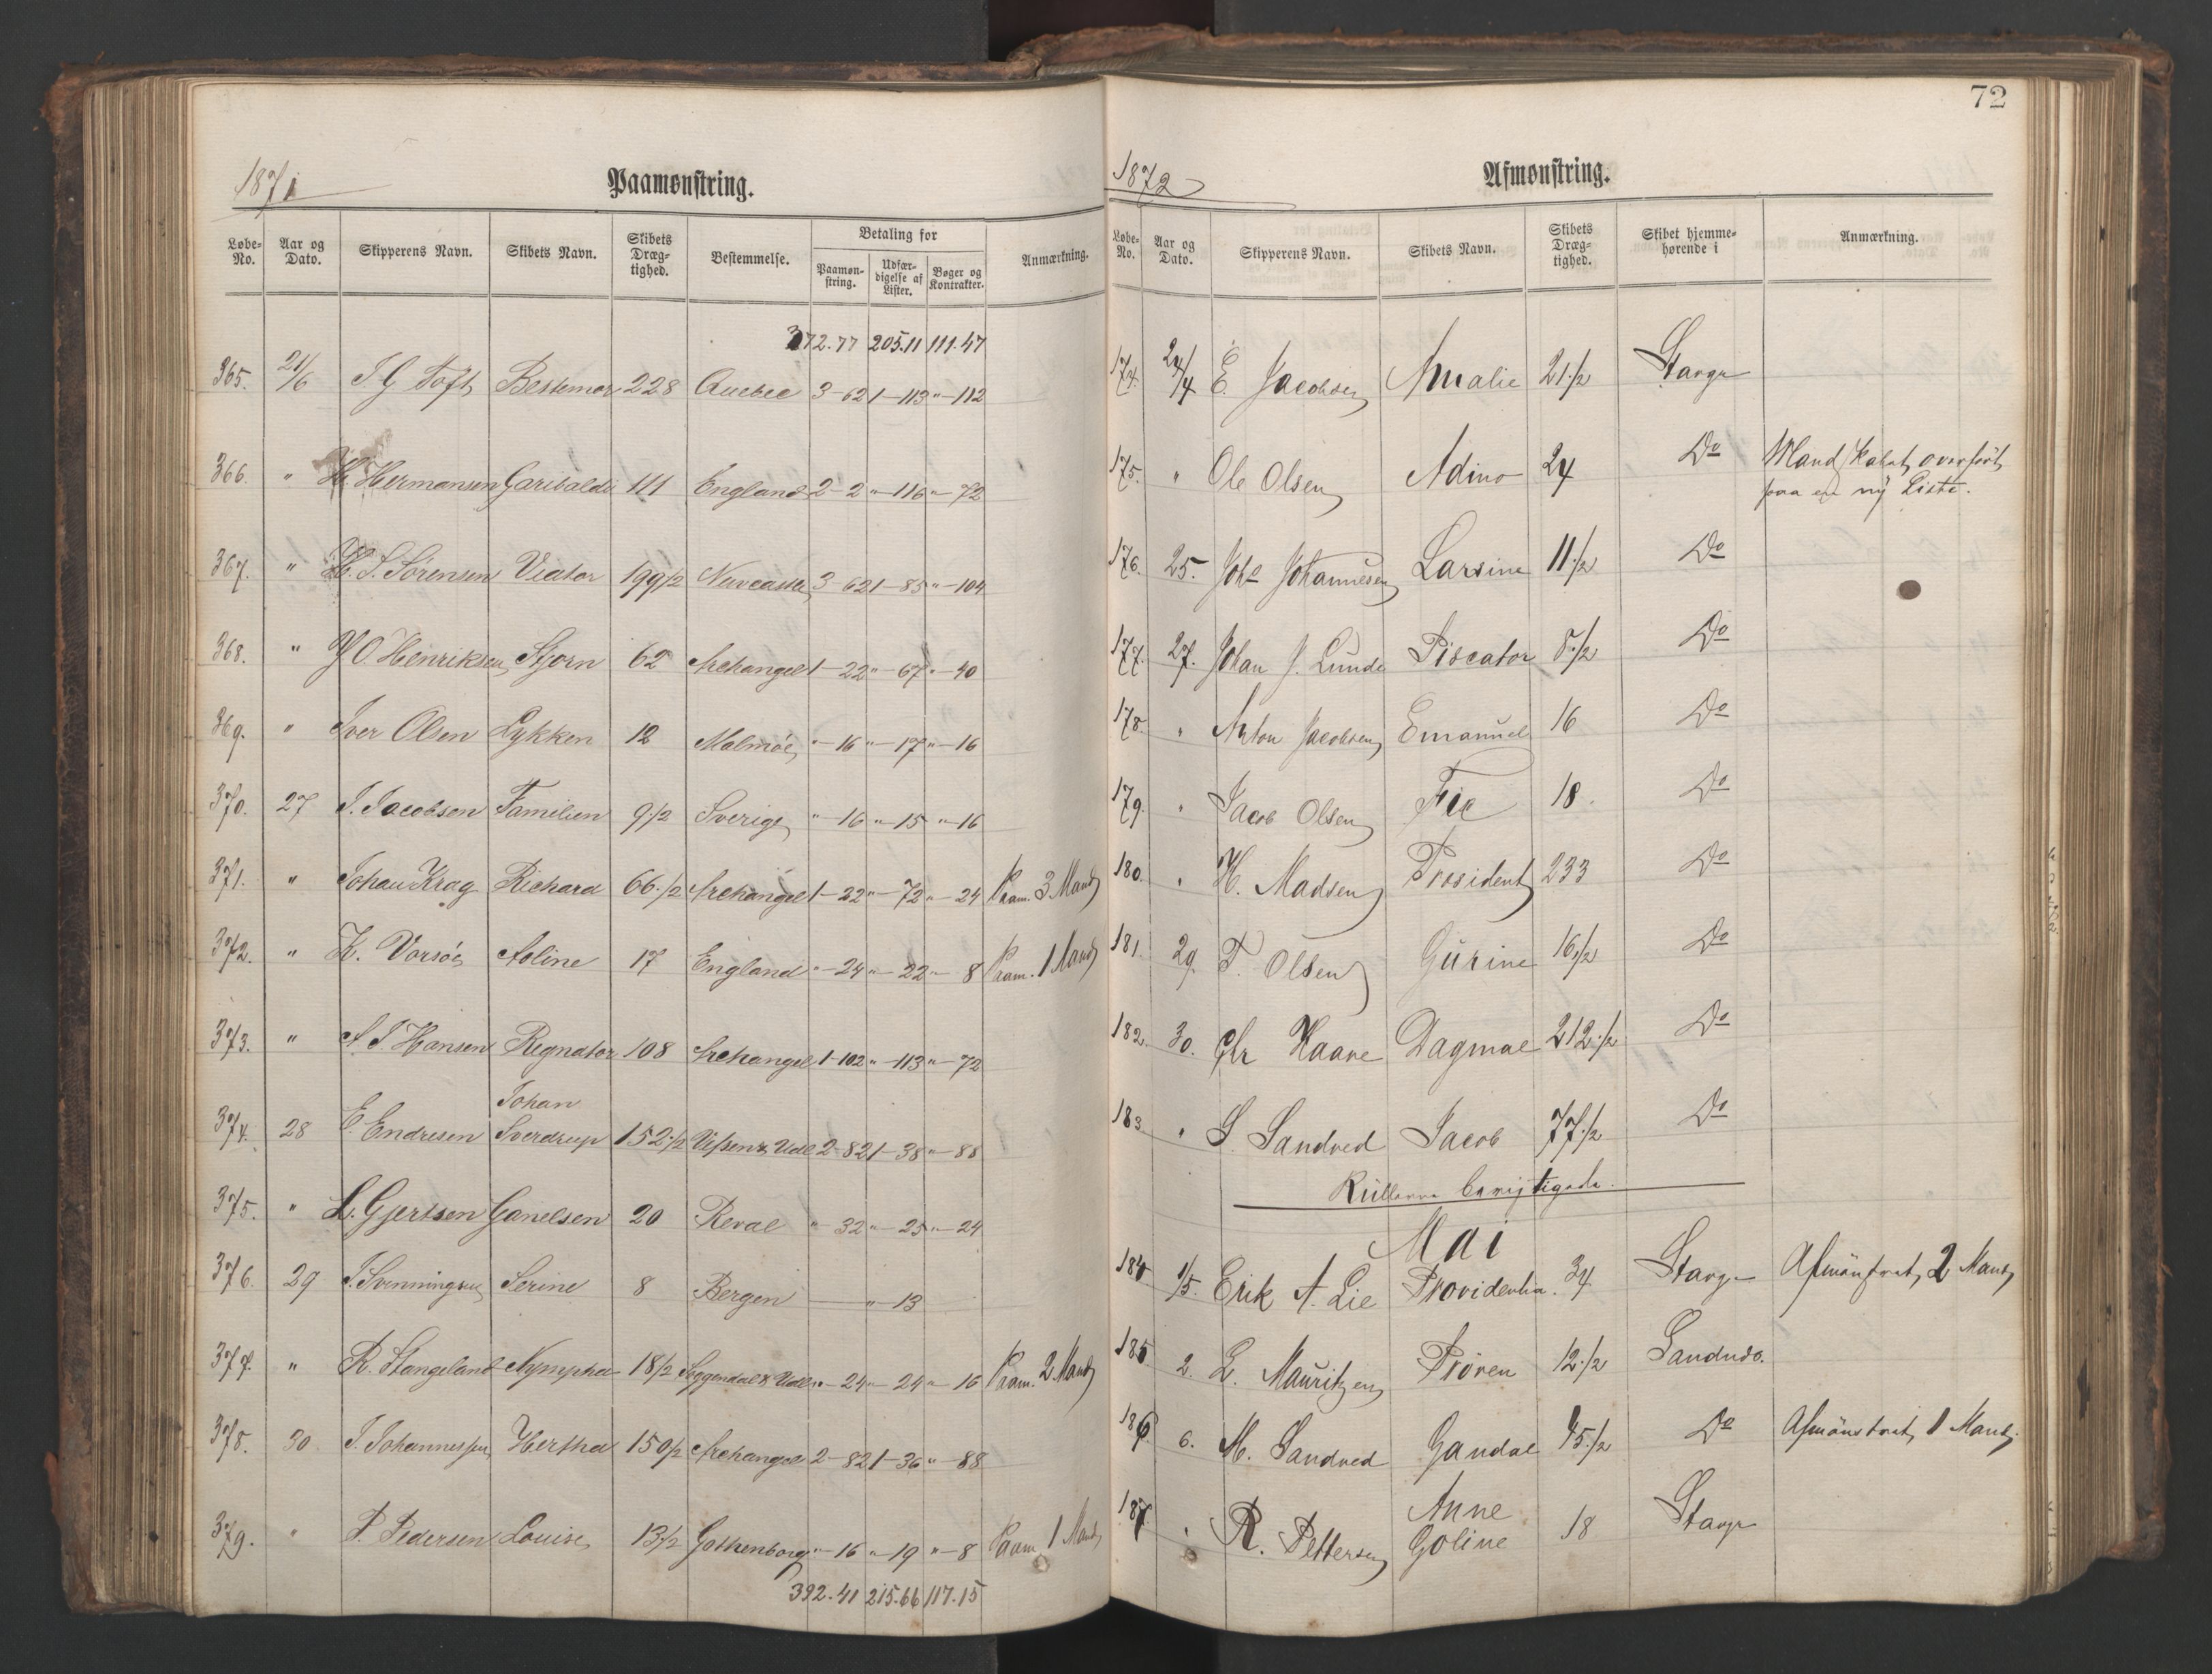 1871
Paamønstring.
Løbe-No. Aar og Dato. Skipperens Navn. Skibets Navn. Skibets Dræg-tighed. Bestemmelse. Betaling for Paamøn-string. Udfær-digelse af Lister. Bøger og Kontrakter. Anmærkning.
372.77 205.11 111.47
365. 21/6 J G Toft Bestemor 228 Quebec 3-62 1-113 "-112
366. " H. Hermansen Garibaldi 111 England 2-2 "-116 "-72
367. " H. S. Sörensen Viator 199 1/2 Newcastle 3-62 1-85 "-104
368. " O. Henriksen Stjorn 62 Archangel 1-22 "-67 "-40
369. " Iver Olsen Lykken 12 Malmöe "-16 "-17 "-16
370. 27 J. Jacobsen Familien 9 1/2 Sverige "-16 "-15 "-16
371. " Johan Krag Richard 66 1/2 Archangel 1-22 "-72 "-24 Paam. 3 Mand
372. " K. Vorsöe Aoline 17 England "-24 "-22 "-8 Paam. 1 Mand
373. " A. J. Hansen Regnator 108 Archangel 1-102 "-113 "-72
374. 28 E. Endresen Johan Sverdrup 152 1/2 & Udl 2-82 1-38 "-88
375. " L. Gjertsen Ganelsen 20 Reval "-32 "-25 "-24
376. 29 J. Svenningsen Serine 8 Bergen "-13
377. " R. Stangeland Nympha 18 1/2 Soggendal & Udl "-24 "-24 "-16 Paam. 2 Mand
378. 30 J. Johannessen Hertha 150 1/2 Archangel 2-82 1-36 "-88
379. " P. Pedersen Louise 13 1/2 Gothenborg "-16 "-19 "-8 Paam 1 Mand
392.41 215.66 117.15
72
1872
Afmønstring.
Løbe-No. Aar og Dato. Skipperens Navn. Skibets Navn. Skibets Dræg-tighed. Skibet hjemme-hørende i Anmærkning.
174. 24/4 E. Jacobsen Amalie 21 1/2 Stavgr
175. " Ole Olsen Adino 24 Do Mandskabet overfört
paa en ny Liste.
176. 25. Johs Johannesen Larsine 11 1/2 Do
177. 27. Johan J. Lunde Piscator 8 1/2 Do
178. " Anton Jacobsen Emanuel 16 Do
179. " Jacob Olsen Fix 18. Do
180. " H. Madsen President 233 Do
181. 29. T. Olsen Gurine 16 1/2 Do
182. 30. Chr Haave Dagmar 212 1/2 Do
183. " S. Sandved Jacob 77 1/2 Do
Rullerne
Mai
184 1/5. Erik A. Lie Providentia. 34 Stavgr Afmönstret 2 Mand
185 2. L. Mauritzen Pröven 12 1/2 Sandnæs.
186 6. M. Sandved Gandal 45 1/2 Do Afmönstret 1 Mand
187 " R. Pettersen Anne Goline 18 Stavgr